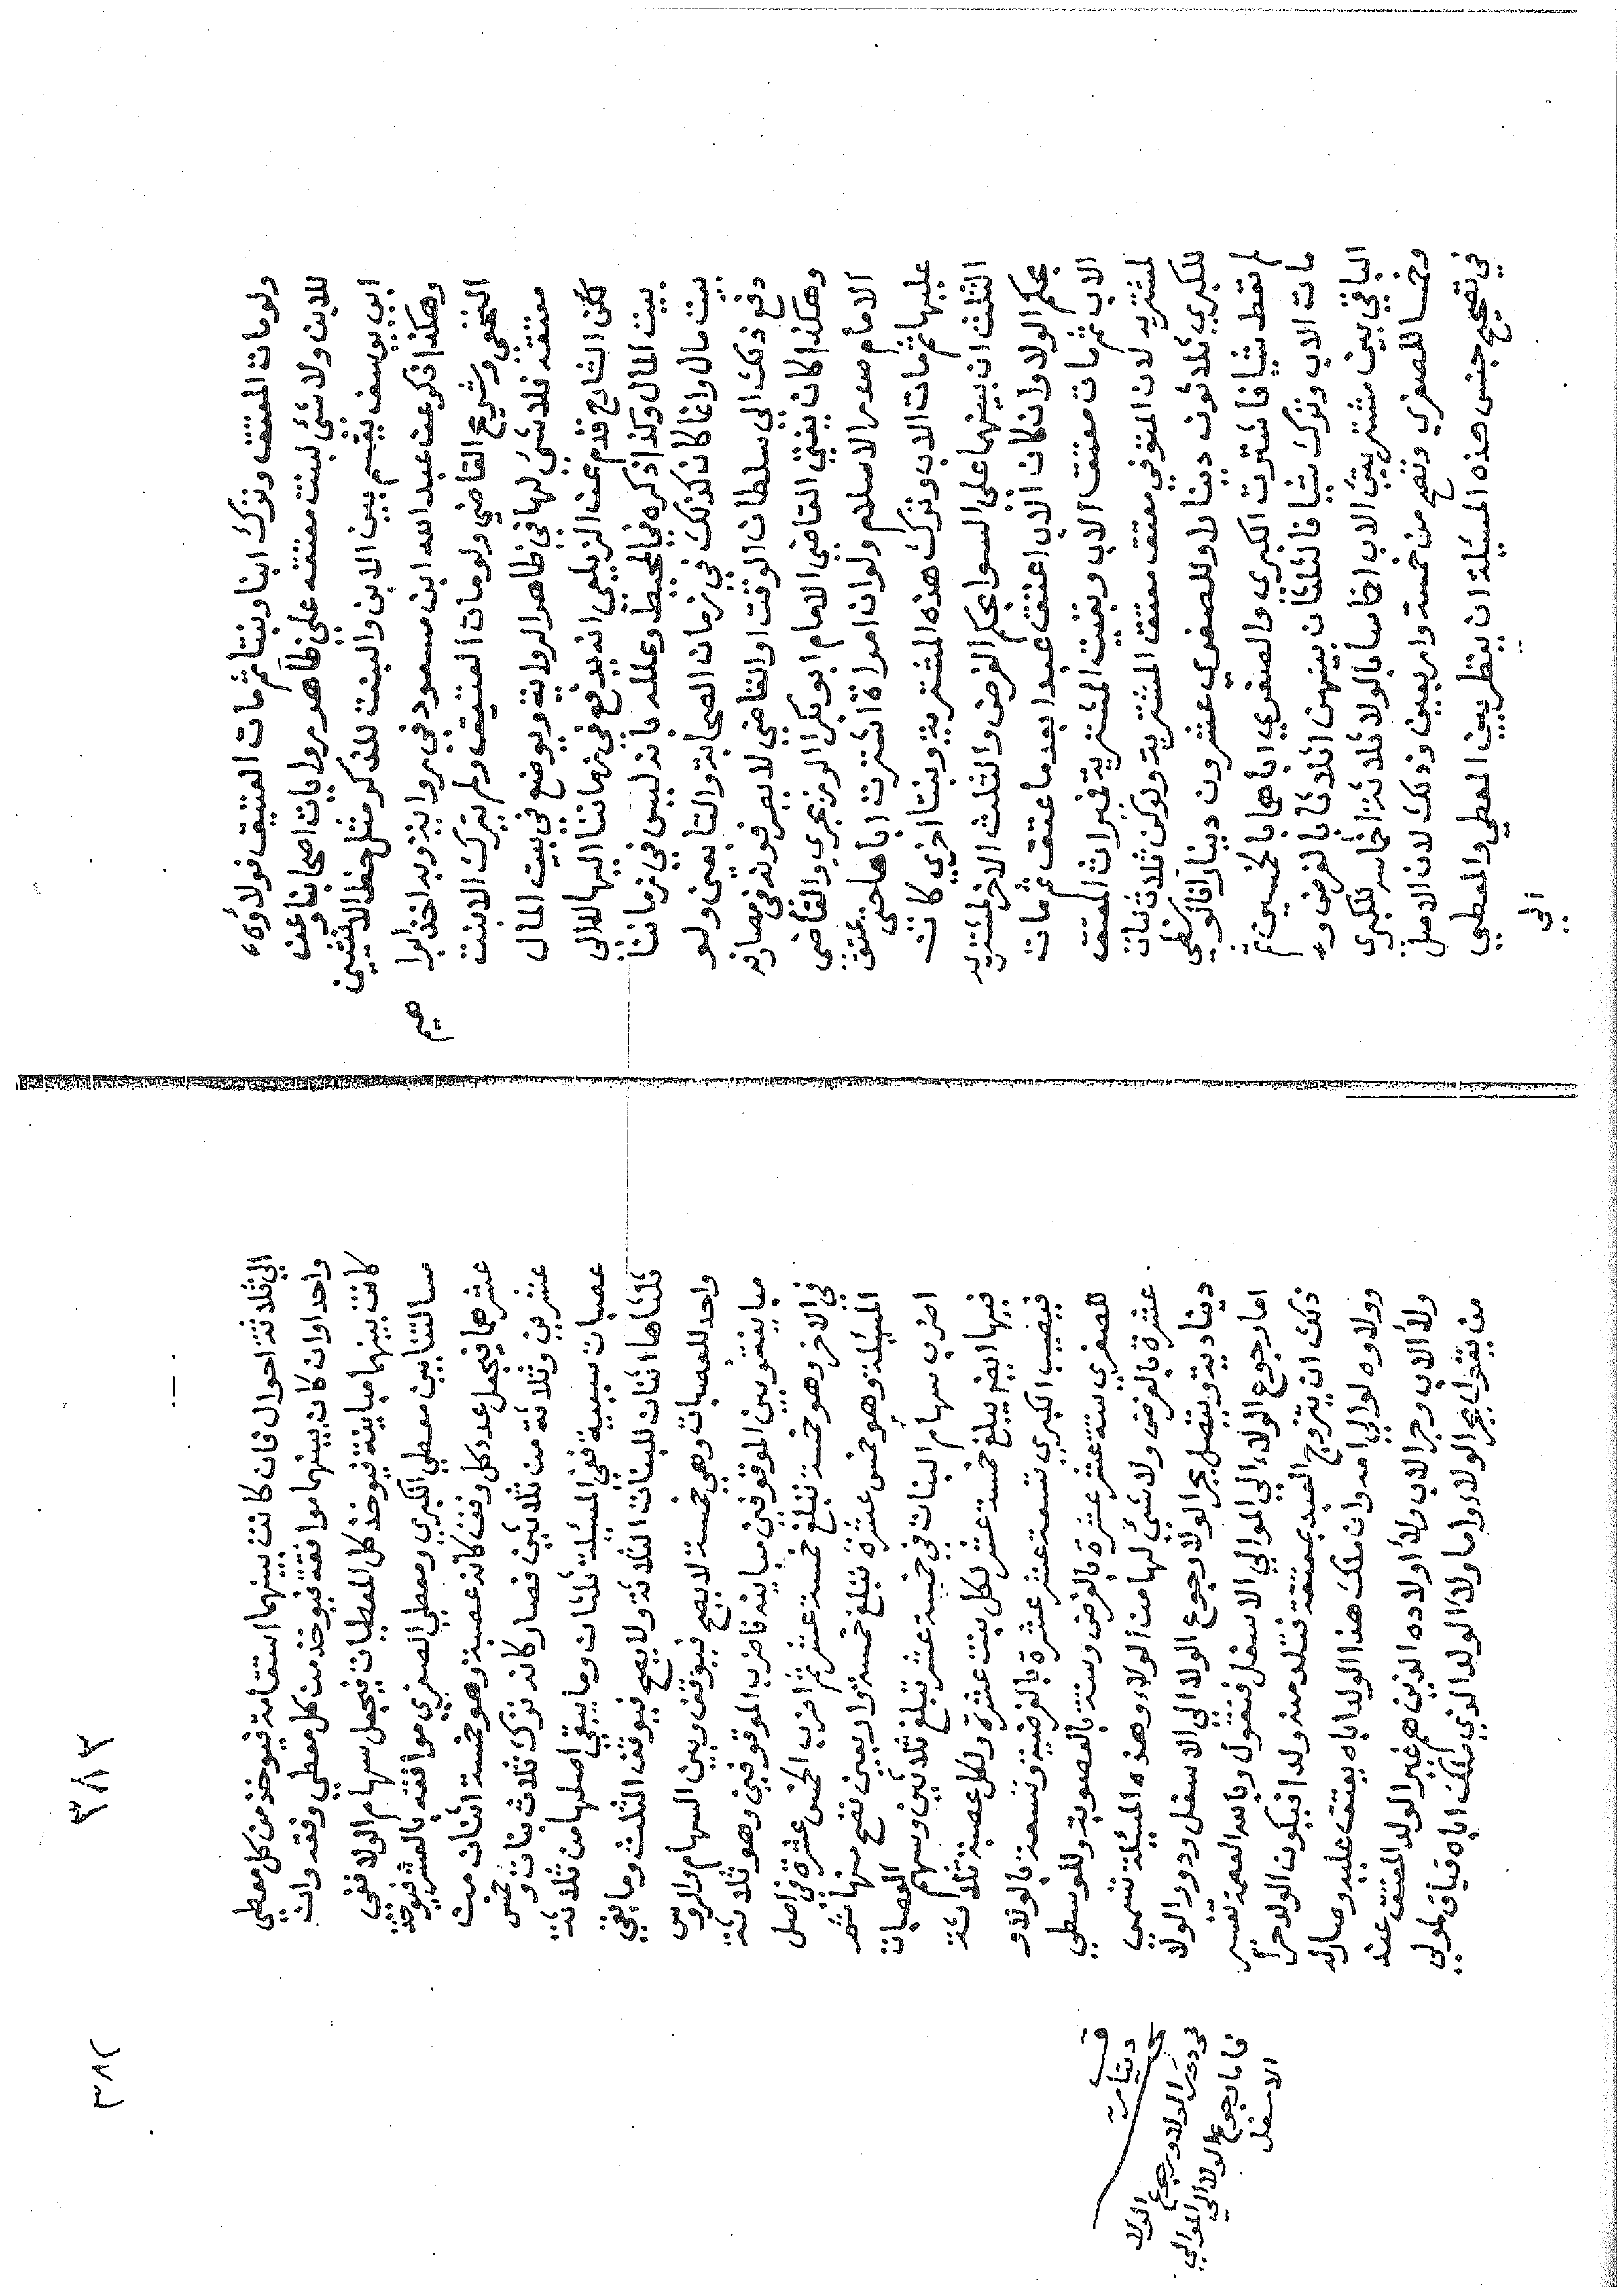 ولومات المعتق وترك ابنا وبنتا ثم مات العتيق فولاؤه
للابن ولا شئ لبنت معتقه على ظاهر روايات اصحابنا وعن
ابي يوسف يقسم بين الابن والبنت للذكر مثل حظ الانثيين
وهكذا ذكر عن عبد الله ابن مسعود في رواية وبه اخذ ابرا
هيم
النخعي وشريح القاضي ولو مات العتيق ولم يترك الا بنت
معتقه فلا شئ لها في ظاهر الرواية ويوضع في بيت المال
لكن الشارح قدم عن الزيلعي انه يدفع في زماننا اليها لا الى
بيت المال وكذا ذكره في المحيط وعلله بانه ليس في زماننا
بيت مال وانما كان كذلك في زمان الصحابة والتابعين ولو
دفع ذلك الي سلطان الوقت او القاضي لا يصرفونه في مصارفه
وهكذا كان يفتي القاضي الامام ابو بكر الوزنجري والقاضي
الامام صدر الاسلام ولو ان امراة اشترت اباها حتى عتق
عليها ثم مات الاب وترك هذه المشترية وبنتا اخري كانت
الثلثان بينهما على السوا بحكم الفرض والثلث الاخر للمشتريه
بحكم الولا وان كان الاب اعتق عبدا بعد ما عتق ثم مات
الاب ثم مات معتق الاب وبقيت المشترية فميراث المعتق
لمشتريه لان المتوفي معتق معتق المشترية ولو كن ثلاث بنات
للكبري ثلاثون دينارا وللصغري عشرون دينارا فالوسطي
لم تعط شيا فاشترت الكبري والصغري اباها بالخمسين ثم
مات الاب وترك شيا فالثلثان بينهن اثلاثا بالفرض و
الباقي بين مشتريتي الاب اخماسا بالولا ثلاثة اخماسه للكبرى
وخمسا للصغري وتصح من خمسة واربعين وذلك لان الاصل
في تصحيح جنس هذه المسئلة ان ينظر بين المعطي والمعطي
الي
الي ثلاثة احوال فان كانت بينهما استقامة فيوخذ من كل معطي
واحد اوان كان بينهما موافقة فيوخذ من كل معطي وفقه وان
كانت بينهما مباينة فيوخذ كل المعطيات فيجعل سهام الولا ففي
مسالتنا بين معطي الكبري ومعطي الصغري موافقة بالعشر فيوخذ
عشرهما فيجعل عدد كل وفق كانه عصبة وهو خمسة اثنان من
عشرين وثلاثة من ثلاثين فصار كانه ترك ثلاث بنات وخمس
عصبات نسبية ففي المسئلة ثلثان وما يبقي اصلها من ثلاثة
ثلثاها اثنان للبنات الثلاثة ولا يصح فيوقف الثلث وما بقي
واحد للعصبات وهي خمسة لا يصح فيوقف وبين السهام والروس
مباينة وبين الموقوفين مباينة فاضرب الموقوفين وهو ثلاثة
في الاخر وهو خمسة تبلغ خمسة عشر ثم اضرب الخمس عشرة في اصل
المسئلة وهو خمس عشرة تبلغ خمسة واربعين تصح منها ثم
اضرب سهام البنات في خمسة عشر تبلغ ثلاثين وسهم العصبات
فيها ايضا يبلغ خمسة عشر لكل بنت عشرة ولكل عصبة ثلاثة
فيصيب الكبري تسعة عشر عشرة بالفرضية وتسعة بالولاو
للصغري ستة عشر عشرة بالفرض وستة بالعصوبة وللوسطي
عشرة بالفرض ولا شئ لها من الولاء وهذه المسئلة تسمي
دينادية ويتصل بجر الولا رجوع الولا الي الاسفل ودور الولا
اما رجوع الولاء الي الموالي الاسفل فنقول وبالله العصمة تفسير
ذلك ان يتزوج العبد بمعتقة فتلد منه ولدا فيكون الولد حرا
وولاوه لموالي امه وان ملك هذا الولد اباه يعتق عليه وصار له
ولا الاب وجر الاب ولا اولاده الذين هم غير الولد المعتق عنه
من يقول بجر الولاء واما ولا الولد الذي ملك اباه فباق لموالي
قف
دينارية
في دور الولا ورجوع الولا
فاما رجوع الولا الي الموالي
الاسفل
٣٨٢